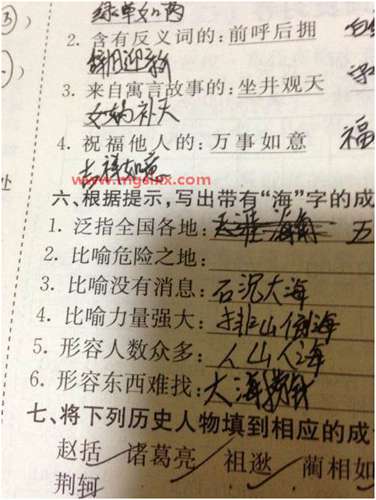 2. 含有反义词的:前呼后拥
辞旧迎新
3. 来自寓言故事的:坐井观天
女娲补天
4. 祝福他人的:万事如意 福
吉祥如意
处
六、根据提示,写出带有“海”字的成
1. 泛指全国各地:天涯海角 五
2. 比喻危险之地:
3. 比喻没有消息:石沉大海
4. 比喻力量强大:排山倒海
5. 形容人数众多:人山人海
6. 形容东西难找:大海捞针
七、将下列历史人物填到相应的成
赵括 诸葛亮 祖逖 蔺相如
荆轲